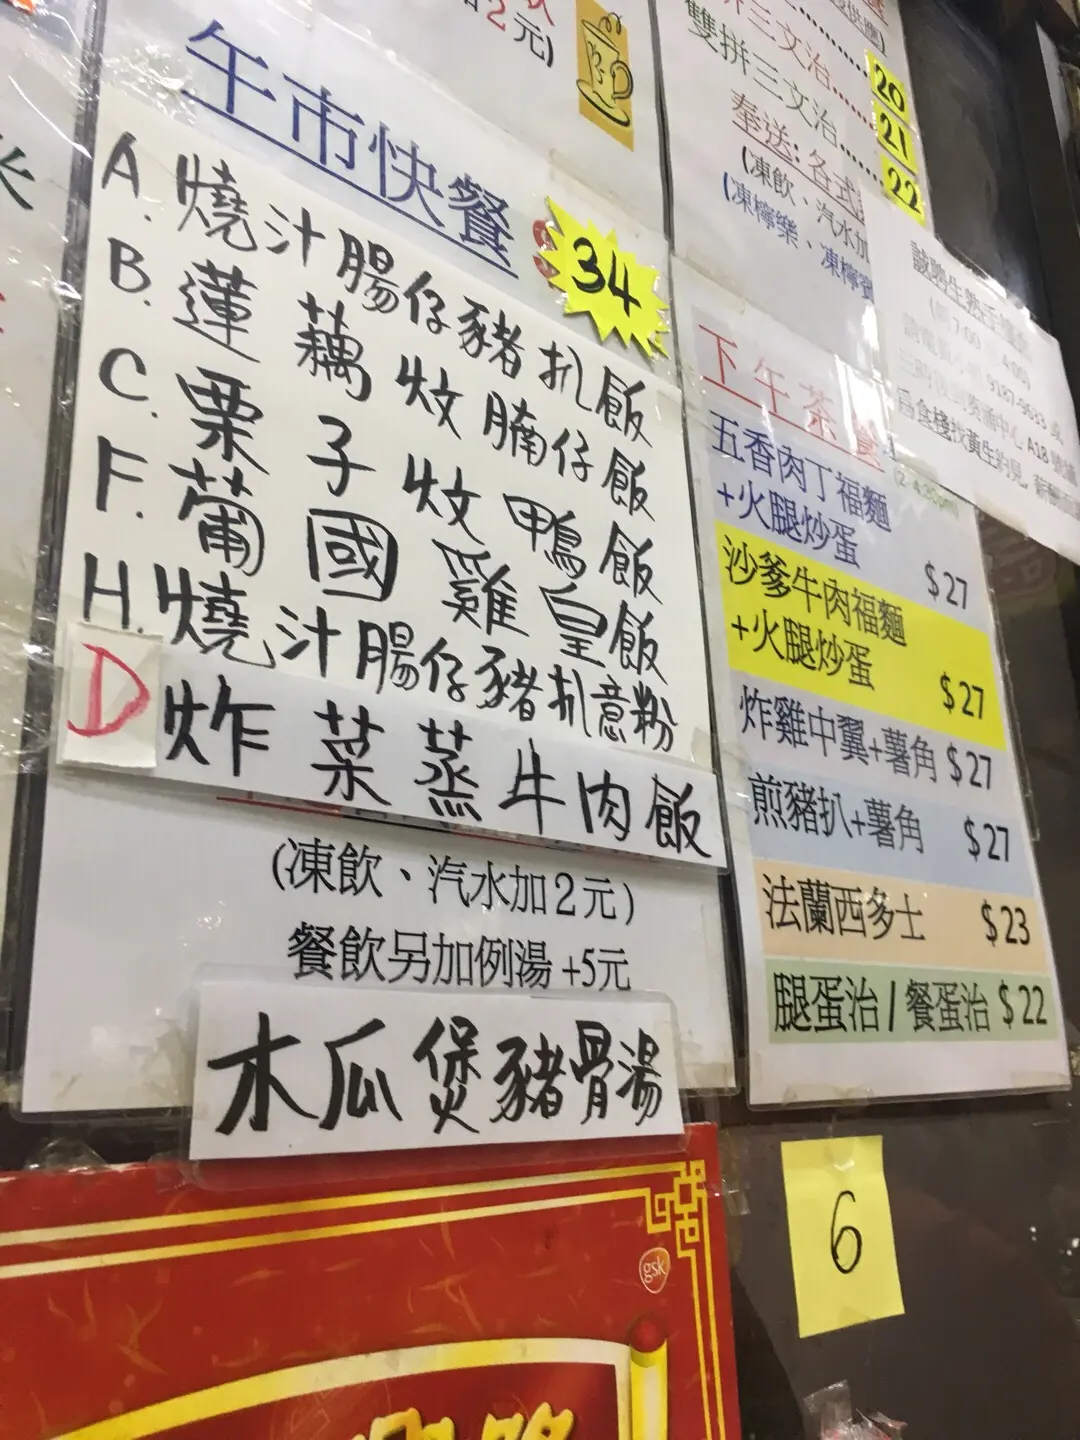 2元)
午市快餐
34
A. 燒汁腸仔豬扒飯
B. 蓮藕炆腩仔飯
C. 栗子炆鴨飯
F. 葡國雞皇飯
H. 燒汁腸仔豬扒意粉
D 炸菜蒸牛肉飯
(凍飲、汽水加2元)
餐飲另加例湯 +5元
木瓜煲豬骨湯
gsk
拼三文治 20
雙拼三文治 21
22
奉送: 各式
(凍飲、汽水加
(凍檸樂、凍檸賓
誠聘生熟手
9187-9633 或
葵涌中心 A18 號舖
食棧找黃生約見。薪酬
下午茶餐
(2-4:30pm)
五香肉丁福麵
+火腿炒蛋 $27
沙爹牛肉福麵
+火腿炒蛋 $27
炸雞中翼+薯角 $27
煎豬扒+薯角 $27
法蘭西多士 $23
腿蛋治 / 餐蛋治 $22
6